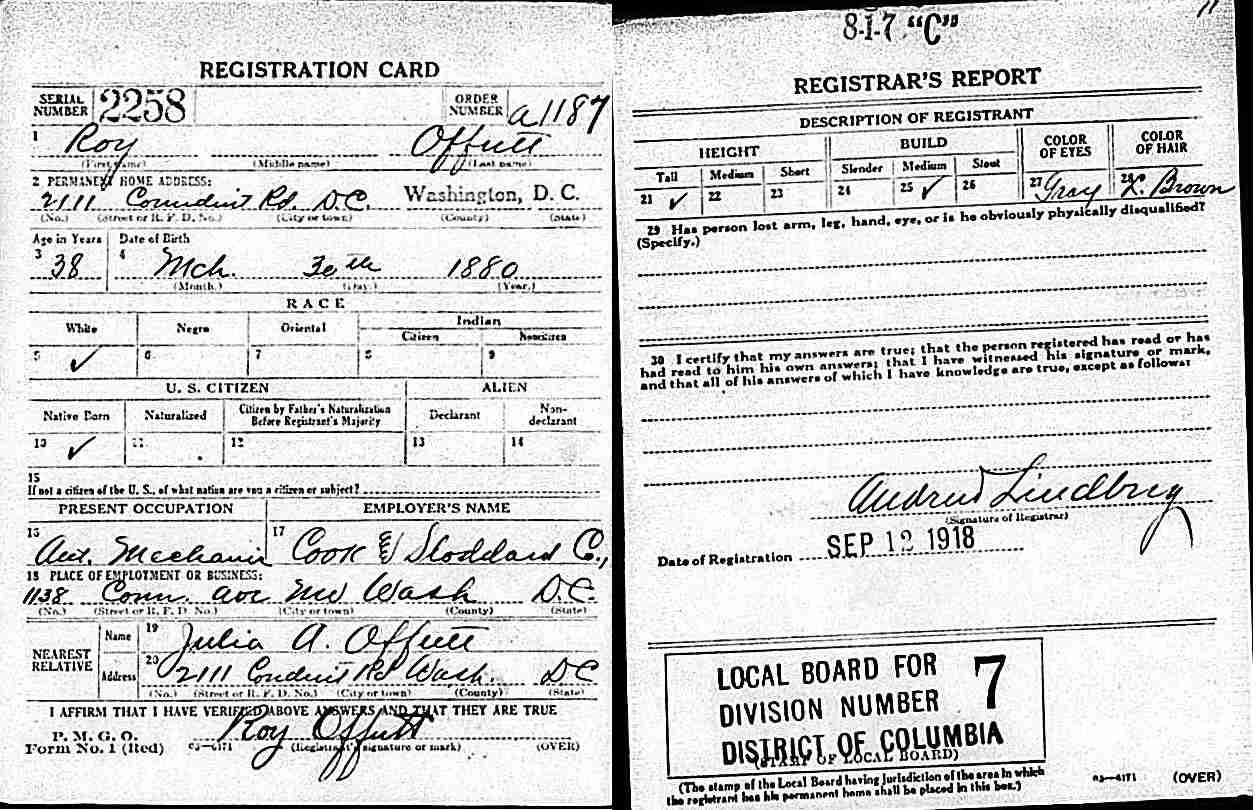 REGISTRATION CARD
SERIAL NUMBER 2258 ORDER NUMBER a1187
1 Roy Offutt
(First name) (Middle name) (Last name)
2 PERMANENT HOME ADDRESS:
2111 Conduit Rd. D.C. Washington, D. C.
(No.) (Street or R. F. D. No.) (City or town) (County) (State)
Age in Years Date of Birth
3 38 4 Mch. 30th 1880
(Month.) (Day.) (Year.)
RACE
White Negro Oriental Indian
Citizen Noncitizen
5 ✓ 6 7 8 9
U. S. CITIZEN ALIEN
Native Born Naturalized Citizen by Father's Naturalization Before Registrant's Majority Declarant Non-declarant
10 ✓ 11 12 13 14
15
If not a citizen of the U. S., of what nation are you a citizen or subject?
PRESENT OCCUPATION EMPLOYER'S NAME
16 Aut. Mechanic 17 Cook & Stoddard Co.,
18 PLACE OF EMPLOYMENT OR BUSINESS:
1138 Conn. ave NW Wash D.C.
(No.) (Street or R. F. D. No.) (City or town) (County) (State)
NEAREST RELATIVE Name 19 Julia A. Offutt
Address 20 2111 Conduit Rd Wash. DC
(No.) (Street or R. F. D. No.) (City or town) (County) (State)
I AFFIRM THAT I HAVE VERIFIED ABOVE ANSWERS AND THAT THEY ARE TRUE
P. M. G. O.
Form No. 1 (Red) 03—6171 Roy Offutt (Registrant's signature or mark) (OVER)
8-1-7 "C"
11
REGISTRAR'S REPORT
DESCRIPTION OF REGISTRANT
HEIGHT BUILD COLOR OF EYES COLOR OF HAIR
Tall Medium Short Slender Medium Stout
21 ✓ 22 23 24 25 ✓ 26 27 Gray 28 L. Brown
29 Has person lost arm, leg, hand, eye, or is he obviously physically disqualified?
(Specify.)
30 I certify that my answers are true; that the person registered has read or has
had read to him his own answers; that I have witnessed his signature or mark,
and that all of his answers of which I have knowledge are true, except as follows:
Andrew Lindberg
(Signature of Registrar)
Date of Registration SEP 12 1918
LOCAL BOARD FOR
DIVISION NUMBER 7
DISTRICT OF COLUMBIA
(STAMP OF LOCAL BOARD)
(The stamp of the Local Board having jurisdiction of the area in which
the registrant has his permanent home shall be placed in this box.)
03—6171 (OVER)